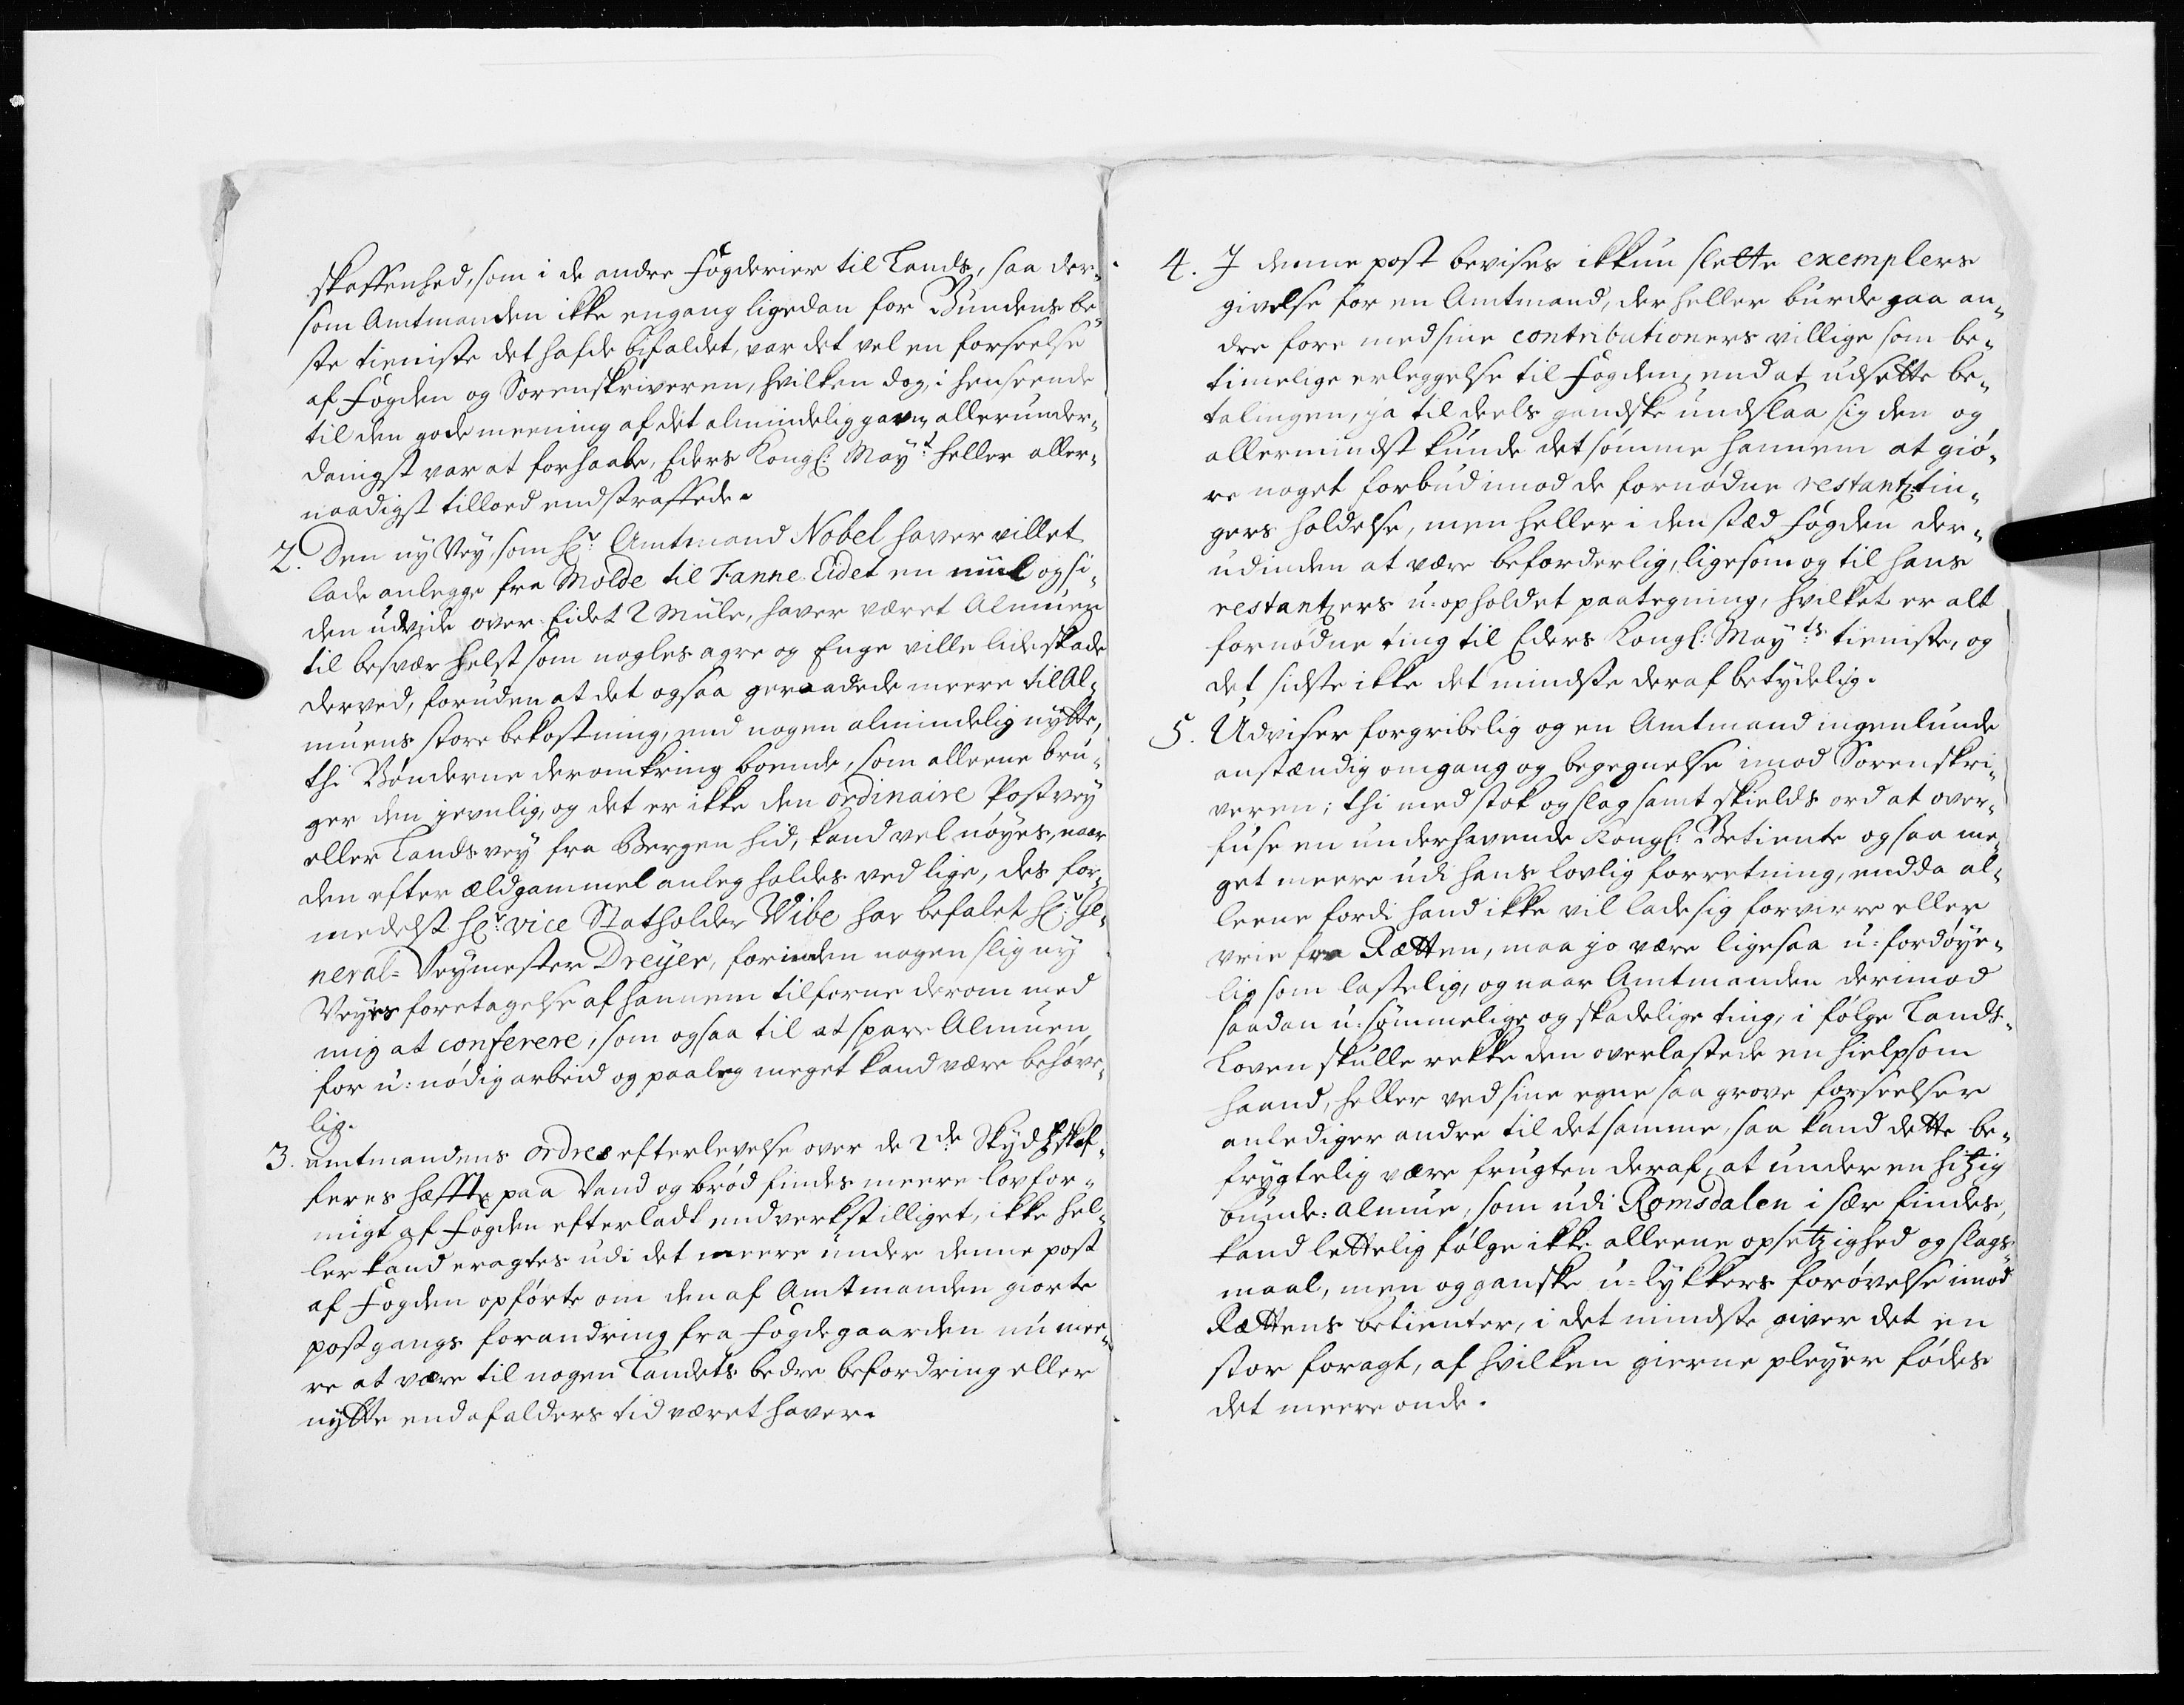 skaffenhed, som i de andre Fogderier til Lands, saa der„
som Amtmanden ikke engang ligedan for Bundens be„
ste tieniste det hafde bifaldet, var det vel en forseelse
af Fogden og Sorenskriveren, hvilken dog, i henseende
til den gode meening af dit almindelig gavn, allerunder„
danigst var at forhaabe, Eders Kongl: Mayt: heller aller„
naadigst tilloed end straffede.
2. Den ny Vey, som Hr: Amtmand Nobel haver villet
lade anlegge fra Molde til Fanne Eidet en miil og si„
den udvide over Eidet 2 Mule, haver været Almuen
til besvær helst som nogles agre og Enge ville lide skade
derved, foruden at det ogsaa geraadede meere til Al„
muens store bekostning, end nogen almindelig nytte,
thi Bønderne deromkring boende, som alleene bru„
ger den jevnlig, og det er ikke den ordinaire Postvey
eller Landsvey fra Bergen hid, kand vel nøyes, naar
den efter ældgammel anleg holdes ved lige, des for„
medelst Hr: vice Statholder Wibe har befalet Hr: Ge„
neral= Veymester Dreyer, forinden nogen slig ny
Veyes foretagelse af hannem tilforne derom med
mig at conferere, som ogsaa til at spare Almuen
for u: nødig arbeid og paaleg meget kand være behøve„
lig.
3. Amtmandens ordres efterlevelse over de 2de Skydtzskaf„
feres hæffte paa Vand og brød findes meere lovfor„
migt af Fogden efterladt end verkstilliget, ikke hel„
ler kand eragtes udi det meere under denne post
af Fogden opførte om den af Amtmanden giorte
postgangs forandring fra Fogdegaarden nu mee„
re at være til nogen Landets bedre befordring eller
nytte end af alders tid været haver.
4. J denne post bevises ikkun slette exemplers
givelse for en Amtmand, der heller burde gaa an„
dre fore med sine contributioners villige som be„
timelige erleggelse til Fogden, end at udsette be„
talingen, ja til deels gandske undslaa sig den og
allermindst kunde det sømme hannem at giø„
re noget forbud imod de fornødne restantz tin„
gers holdelse, men heller i den stæd Fogden der„
udinden at være beforderlig, ligesom og til hans
restantzers u: opholdet paategning, hvilket er alt
fornødne ting til Eders Kongl: Mayts tieniste, og
det sidste ikke det mindste deraf betydelig.
5. Udviser forgribelig og en Amtmand ingenlunde
anstændig omgang og begegnelse imod Sorenskri„
veren; thi med stok og slag samt skields ord at over„
fuse en underhavende Kongl: Betiente og saa me„
get meere udi hans lovlig forretning, endda al„
leene fordi hand ikke vil lade sig forvirre eller
vrie fra Rætten, maa jo være ligesaa u: fordøye„
lig som lastelig, og naar Amtmanden derimod
saadan u: sømmelige og skadelige ting, i følge Lands„
Loven skulle rekke den overlastede en hielpsom
haand, heller ved sine egne saa grove forseelser
anlediger andre til det samme, saa kand dette be„
frygtelig være frugten deraf, at under en hitzig
bunde: almue, som udi Romsdalen i sær findes,
kand lettelig følge ikke alleene opsetzighed og slags„
maal, men og ganske u= lykkers forøvelse imod
Rættens betienter, i det mindste giver det en
stor foragt, af hvilken gierne pleyer fødes
det meere onde.